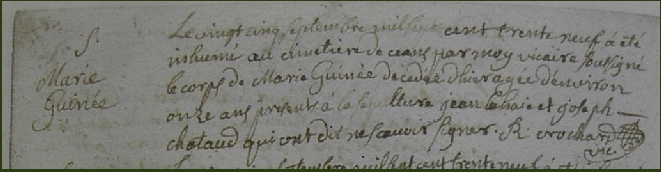 S.
Marie
Guinée
Le vingt cinq septembre mil sept cent trente neuf a été
inhumé au cimetière de ceans par moy vicaire soussigné
le corps de Marie Guinée decedée d'hier agée d'environ
onze ans presents à la sepulture jean et joseph
chataud qui ont dit ne scavoir signer. R. crochard
vic.
septembre mil sept cent trente neuf a été